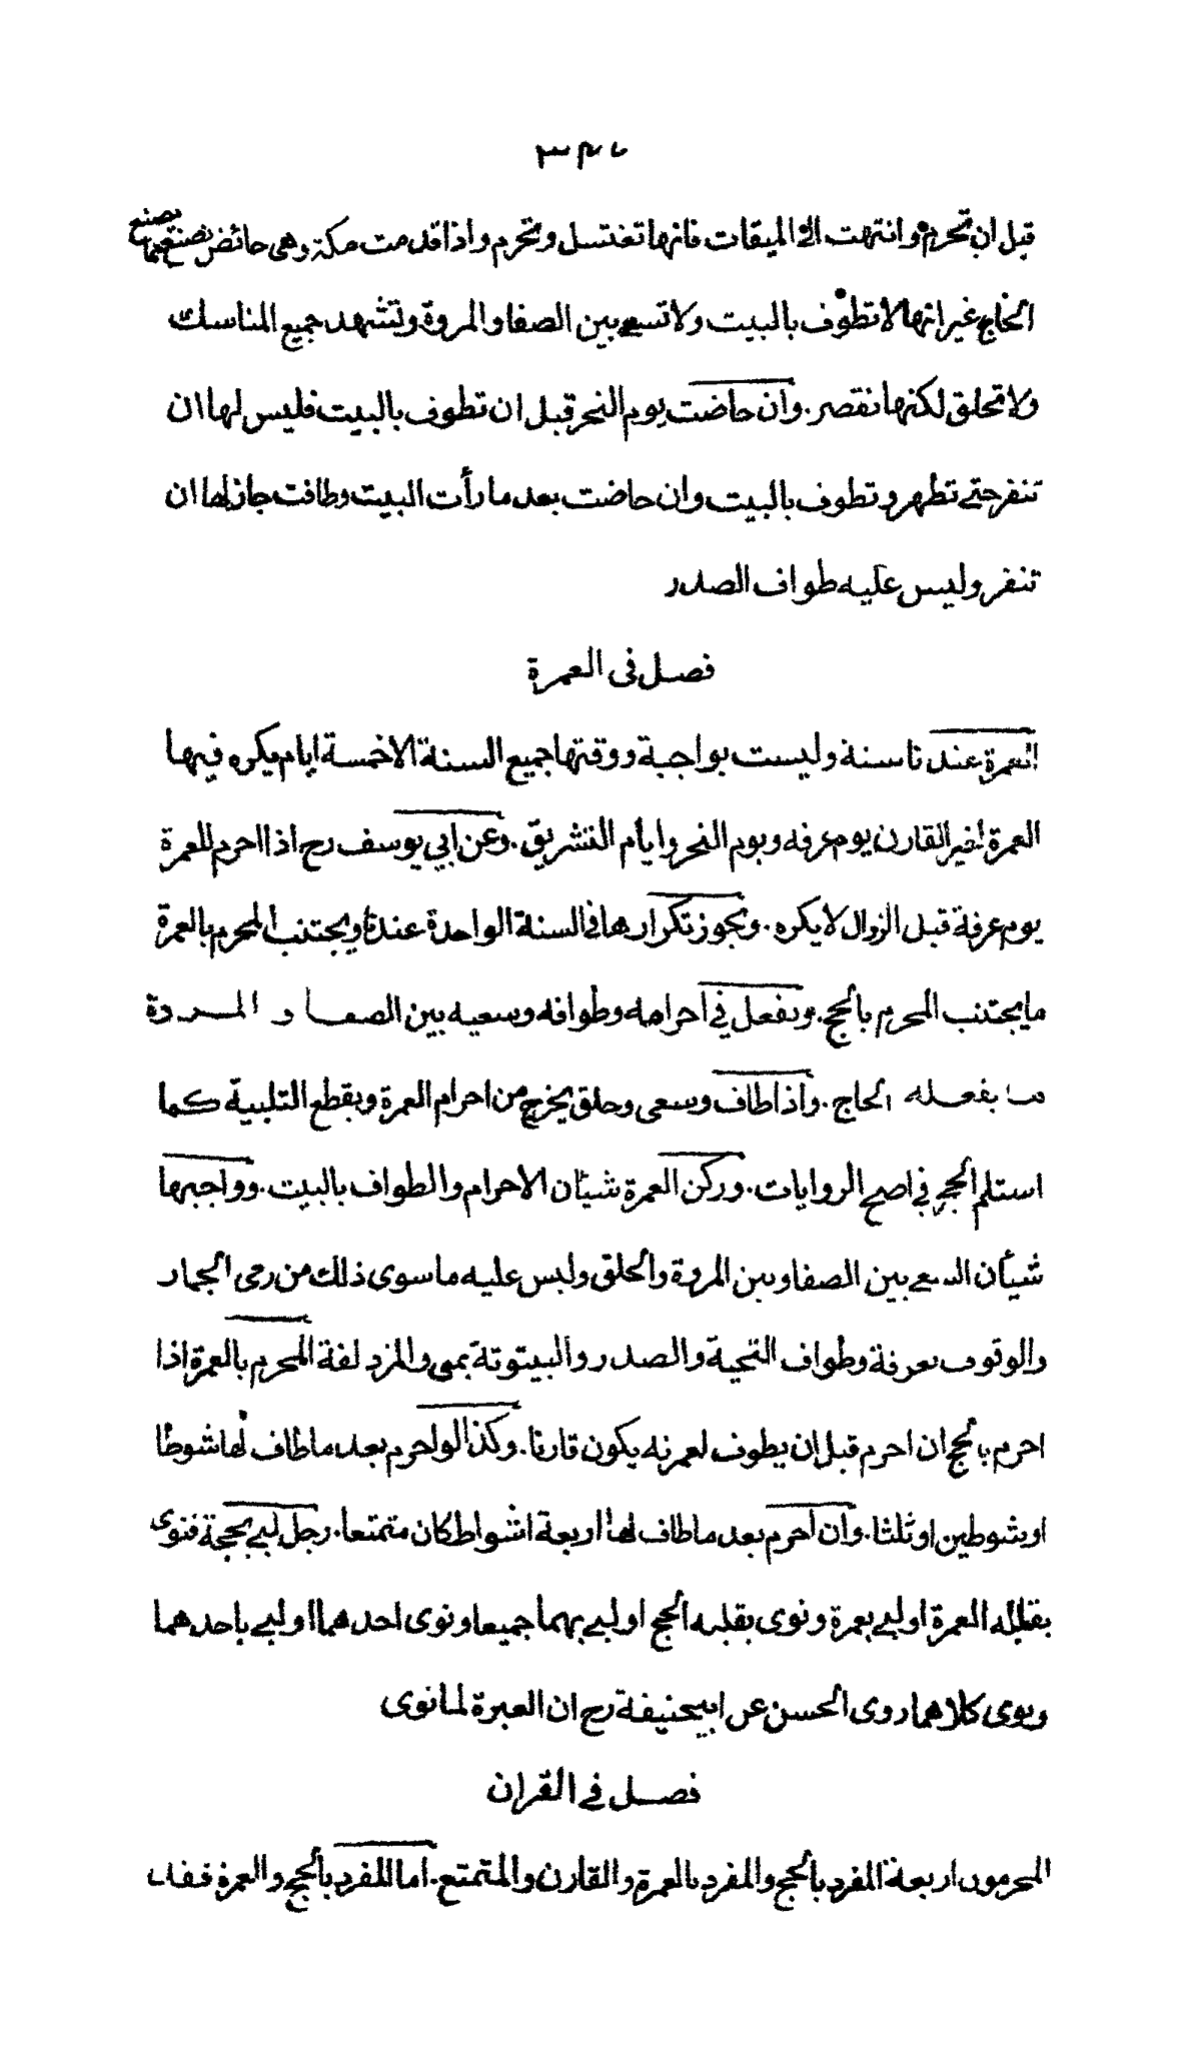 ٣٤٦
قبل ان تحرم وانتهت الى الميقات فانها تغتسل وتحرم واذا قدمت مكة وهى حائض تصنع كما يصنع
الحاج غير انها لا تطوف بالبيت ولا تسعى بين الصفا والمروة وتشهد جميع المناسك
ولا تحلق لكنها تقصر. وان حاضت يوم النحر قبل ان تطوف بالبيت فليس لها ان
تنفر حتى تطهر وتطوف بالبيت وان حاضت بعد ما رأت البيت وطافت جاز لها ان
تنفر وليس عليه طواف الصدر
فصل فى العمرة
العمرة عندنا سنة وليست بواجبة ووقتها جميع السنة الا خمسة ايام يكره فيها
العمرة لغير القارن يوم عرفه ويوم النحر وايام التشريق. وعن ابي يوسف رح اذا احرم للعمرة
يوم عرفة قبل الزوال لا يكره. ويجوز تكرارها في السنة الواحدة عندنا ويجتنب المحرم بالعمرة
ما يجتنب المحرم بالحج. ويفعل في احرامه وطوافه وسعيه بين الصفا و المروة
ما يفعله الحاج. واذا طاف وسعى وحلق يخرج من احرام العمرة ويقطع التلبية كما
استلم الحجر في اصح الروايات. وركن العمرة شيئان الاحرام والطواف بالبيت. وواجبها
شيأن السعى بين الصفا وبين المروة والحلق وليس عليه ما سوى ذلك من رمى الجمار
والوقوف بعرفة وطواف التحية والصدر والبيتوتة بمنى والمزدلفة المحرم بالعمرة اذا
احرم بالحج ان احرم قبل ان يطوف لعمرته يكون قارنا. وكذا لو احرم بعد ما طاف لها شوطا
او شوطين او ثلثا. وان احرم بعد ما طاف لها اربعة اشواط كان متمتعا. رجل لبى بحجة فنوى
بقلبه العمرة او لبى بعمرة ونوى بقلبه الحج او لبى بهما جميعا ونوى احدهما او لبى باحدهما
ونوى كلاهما روى الحسن عن ابيحنيفة رح ان العبرة لما نوى
فصل في القران
المحرمون اربعة المفرد بالحج والمفرد بالعمرة والقارن والمتمتع. اما المفرد بالحج والعمرة فقد